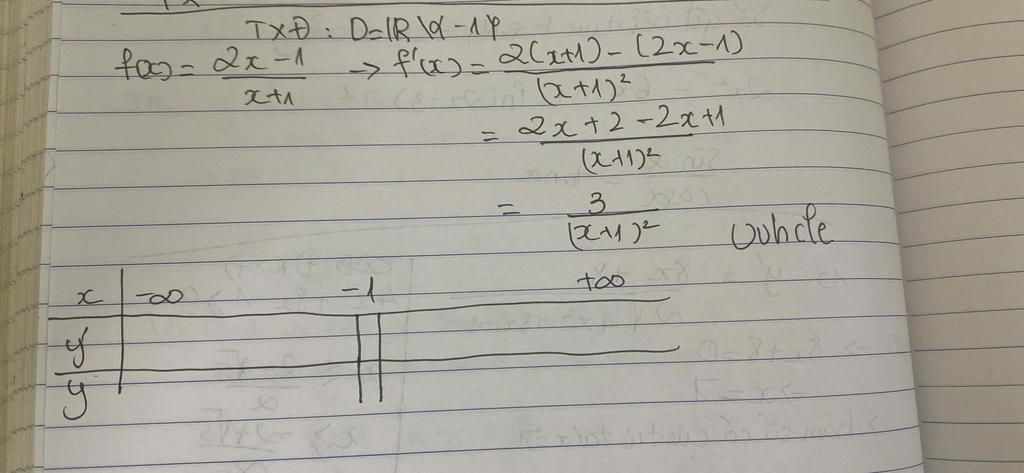 TXĐ : D=ℝ\{-1}
f(x) = (2x-1)/(x+1) → f'(x) = (2(x+1) - (2x-1))/(x+1)²
= (2x+2-2x+1)/(x+1)²
= 3/(x+1)²
x -∞ -1 +∞
y'
y